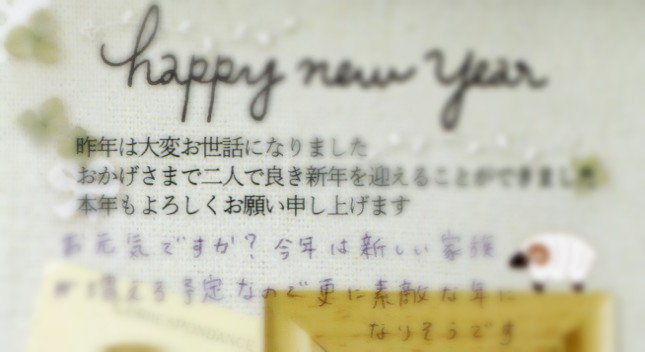 happy new year
昨年は大変お世話になりました
おかげさまで二人で良き新年を迎えることができました
本年もよろしくお願い申し上げます
お元気ですか？今年は新しい家族
が増える予定なので更に素敵な年に
なりそうです